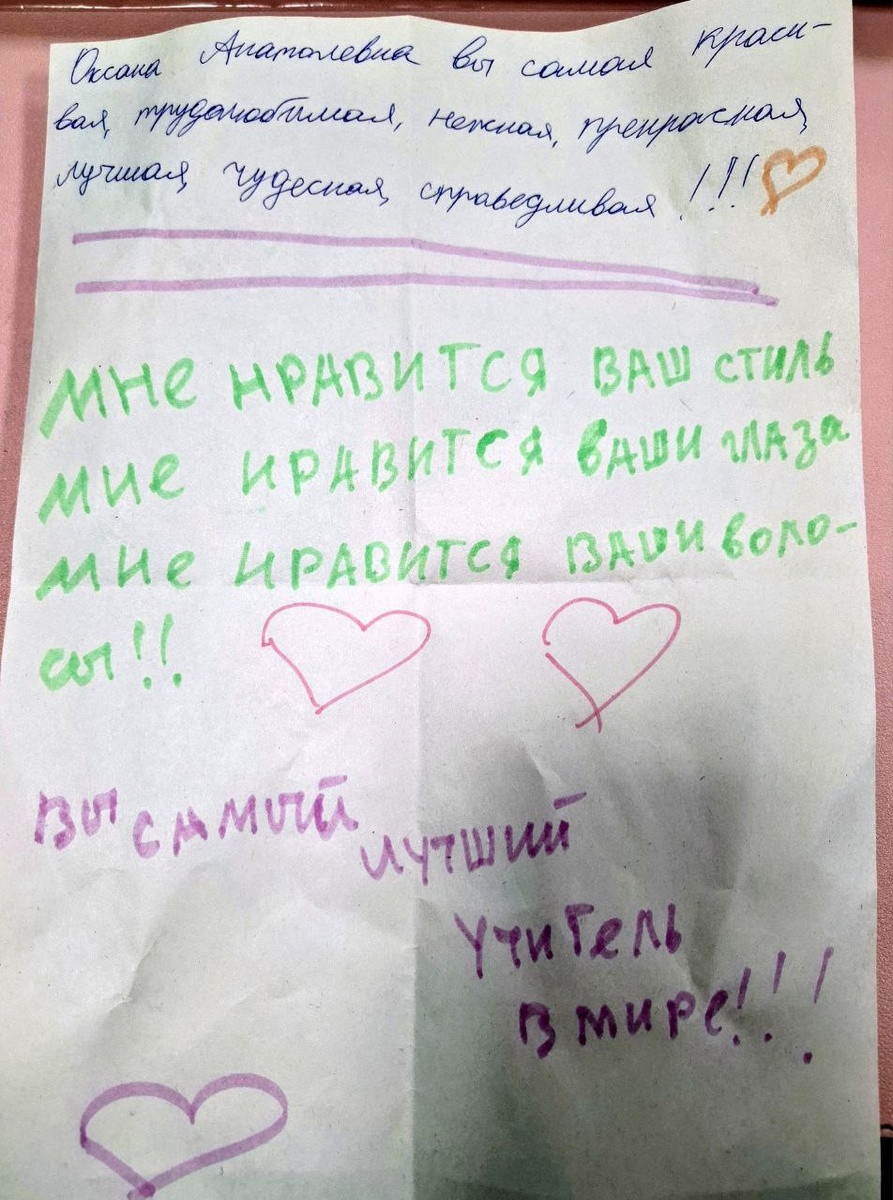 Оксана Анатолевна вы самая краси-
вая, трудолюбимая, нежная, прекрасная,
лучшая, чудесная, справедливая!!!
МНЕ НРАВИТСЯ ВАШ СТИЛЬ
МНЕ НРАВИТСЯ ВАШИ ГЛАЗА
МНЕ НРАВИТСЯ ВАШИ ВОЛО-
СЫ!!
ВЫ САМЫЙ
ЛУЧШИЙ
УЧИТЕЛЬ
В МИРЕ!!!